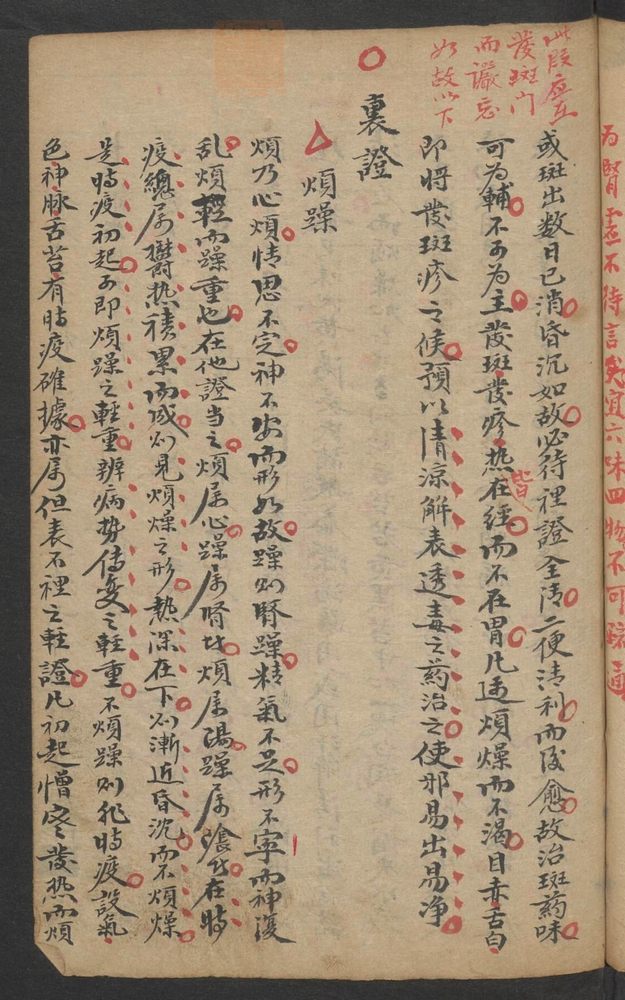 此段應在
發斑門
而嚴忌
如故以下
或斑出数日已消昏沉如故必待裡證全清二便清利而後愈故治斑藥味
可为輔不可为主發斑發疹热皆在經而不在胃凡遇煩燥而不渴目赤舌白
即將發斑疹之候預以清凉解表透毒之药治之使邪易出易净
裏證
煩躁
煩乃心煩情思不定神不安而形如故躁则腎躁精氣不足形不寧而神復
乱煩輕而躁重也在他證当之煩属心躁属腎故煩属陽躁属陰此在時
疫總属鬱热積累而成则見煩燥之形热深在下则漸近昏沉而不煩燥
是時疫初起可即煩躁之輕重辨病势傳变之輕重不煩躁则非時疫設氣
色神脉舌苔有時疫確據亦属但表不裡之輕證凡初起憎寒發热而煩
为腎虚不待言矣宜六味四物不可